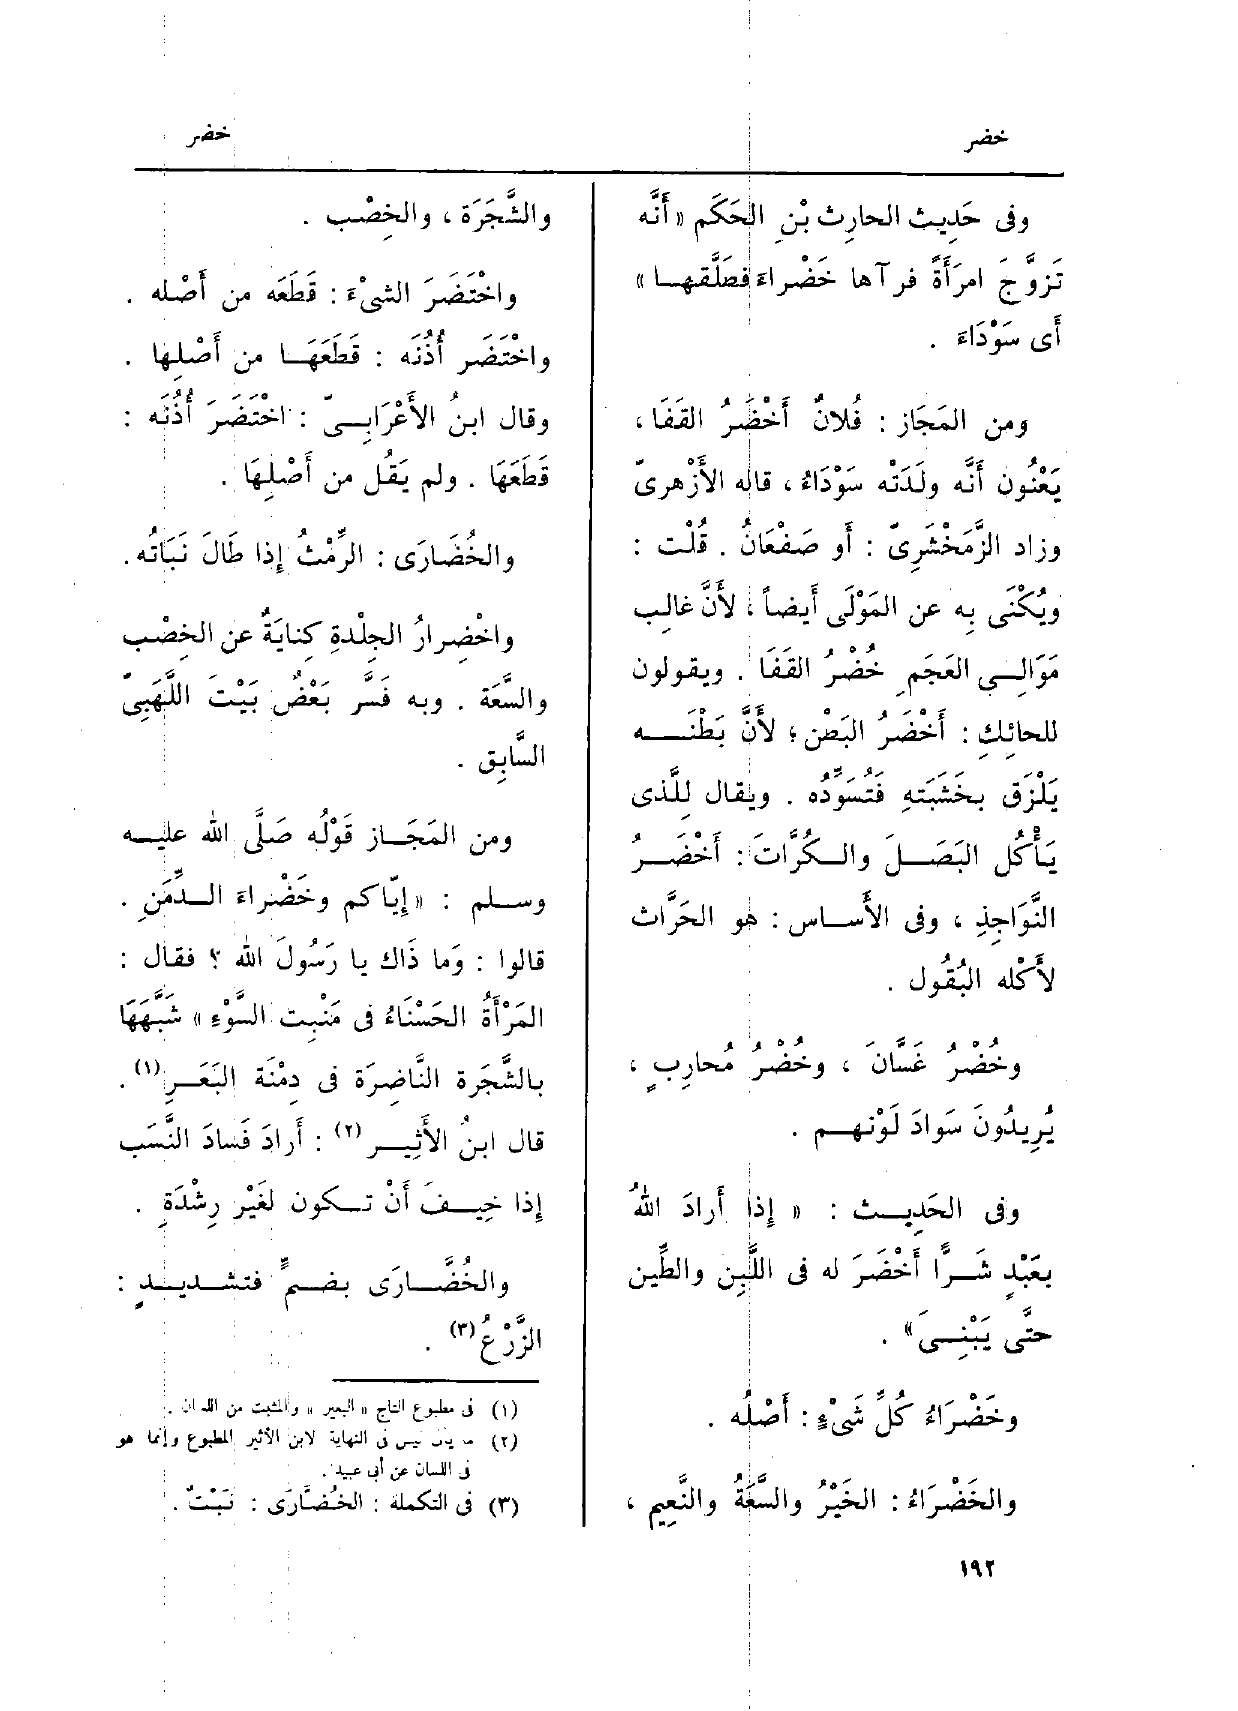 خضر
خضر
وفى حَدِيث الحارِث بْنِ الحَكَم «أَنَّه
تَزوَّجَ امرَأَةً فرآها خَضْراءَ فصَلَّقها»
أَى سَوْدَاءَ .
ومن المَجَاز : فُلانٌ أَخْضَرُ القَفَا ،
يَعْنُون أَنَّه ولَدَتْه سَوْدَاءُ ، قاله الأَزْهرىّ
وزاد الزَّمَخْشَرِىّ : أَو صَفْعَانُ . قُلْت :
ويُكْنَى بِه عن المَوْلَى أَيضاً ، لأَنَّ غالِب
مَوَالِى العَجَمِ خُضْرُ القَفَا . ويقولون
للحائِك : أَخْضَرُ البَطْن ؛ لأَنَّ بَطْنَه
يَلْزَق بخَشَبَتِهِ فَتُسَوِّدُه . ويقال لِلَّذى
يَأْكُل البَصَلَ والكُرَّاثَ : أَخْضَرُ
النَّوَاجِذِ ، وفى الأَساس : هو الحَرَّاث
لأَكْله البُقُول .
وخُضْرُ غَسَّانَ ، وخُضْرُ مُحارِبٍ ،
يُرِيدُونَ سَوادَ لَوْنهم .
وفى الحَدِيث : « إِذا أَرادَ اللهُ
بعَبْدٍ شَرًّا أَخْضَرَ له فى اللَّبِن والطِّين
حتَّى يَبْنِىَ» .
وخَضْرَاءُ كُلِّ شَىْءٍ : أَصْلُه .
والخَضْرَاءُ : الخَيْرُ والسَّعَةُ والنَّعِيم ،
والشَّجَرَة ، والخِصْب .
واخْتَضَرَ الشىْءَ : قَطَعَه من أَصْله .
واخْتَضَر أُذُنَه : قَطَعَهَا من أَصْلِها .
وقال ابنُ الأَعْرَابِىّ : اخْتَضَرَ أُذُنَه :
قَطَعَهَا . ولم يَقُل من أَصْلِهَا .
والخُضَارَى : الرِّمْثُ إِذا طَالَ نَبَاتُه .
واخْضِرارُ الجِلْدةِ كِنايَةٌ عن الخِصْب
والسَّعَة . وبه فَسَّر بَعْضٌ بَيْتَ اللَّهَبِىّ
السَّابِق .
ومن المَجَاز قَوْلُه صَلَّى الله عليه
وسلم : « إِيّاكم وخَضْراءَ الدِّمَنِ .
قالوا : وَما ذَاك يا رَسُولَ الله ؟ فقال :
المَرْأَةُ الحَسْنَاءُ فى مَنْبِت السَّوْءِ » شَبَّهَهَا
بالشَّجَرة النَّاضِرَة فى دِمْنَة البَعَرِ (١) .
قال ابنُ الأَثِير (٢) : أَرادَ فَسادَ النَّسَب
إِذا خِيفَ أَنْ تكون لغَيْر رِشْدَةٍ .
والخُضَّارَى بضمٍّ فتشديدٍ :
الزَّرْعُ (٣) .
(١) فى مطبوع التاج « البعير » والمثبت من اللسان .
(٢) ليس فى النهاية لابن الأثير المطبوع وإنما هو
فى اللسان عن أبى عبيد .
(٣) فى التكملة : الخُضَّارَى : نَبْتٌ .
١٩٢